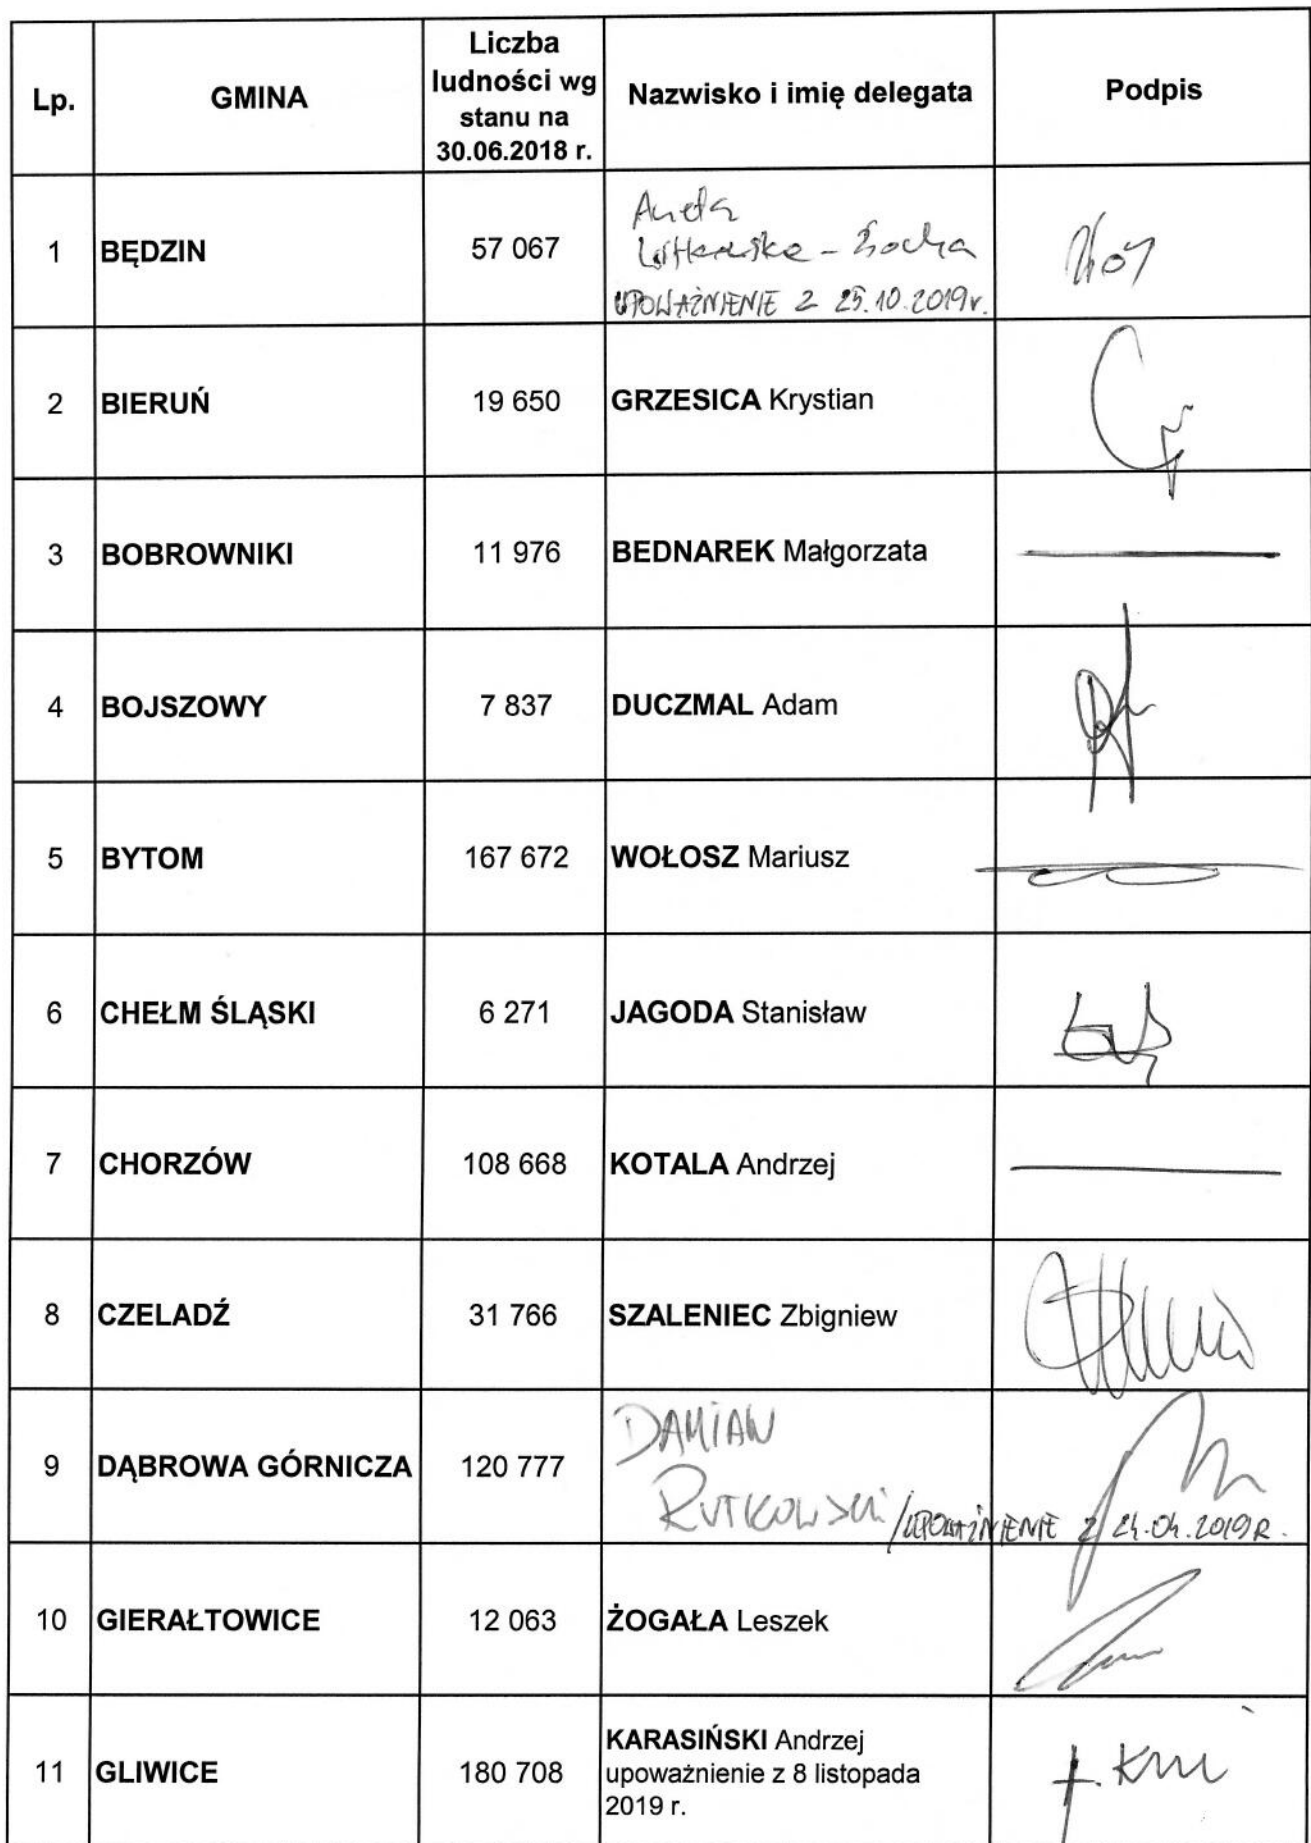 Lp. GMINA Liczba ludności wg stanu na 30.06.2018 r. Nazwisko i imię delegata Podpis
1 BĘDZIN 57 067 Aneta
- Socha
UPOWAŻNIENIE Z 25.10.2019r.
2 BIERUŃ 19 650 GRZESICA Krystian
3 BOBROWNIKI 11 976 BEDNAREK Małgorzata
4 BOJSZOWY 7 837 DUCZMAL Adam
5 BYTOM 167 672 WOŁOSZ Mariusz
6 CHEŁM ŚLĄSKI 6 271 JAGODA Stanisław
7 CHORZÓW 108 668 KOTALA Andrzej
8 CZELADŹ 31 766 SZALENIEC Zbigniew
9 DĄBROWA GÓRNICZA 120 777 DAMIAN
RUTKOWSKI /UPOWAŻNIENIE Z 24.04.2019R.
10 GIERAŁTOWICE 12 063 ŻOGAŁA Leszek
11 GLIWICE 180 708 KARASIŃSKI Andrzej
upoważnienie z 8 listopada
2019 r.